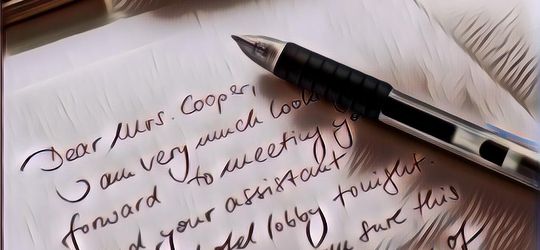 Dear Mrs. Cooper,
I am very much
forward to meeting
your assistant
lobby tonight.
sure this
of